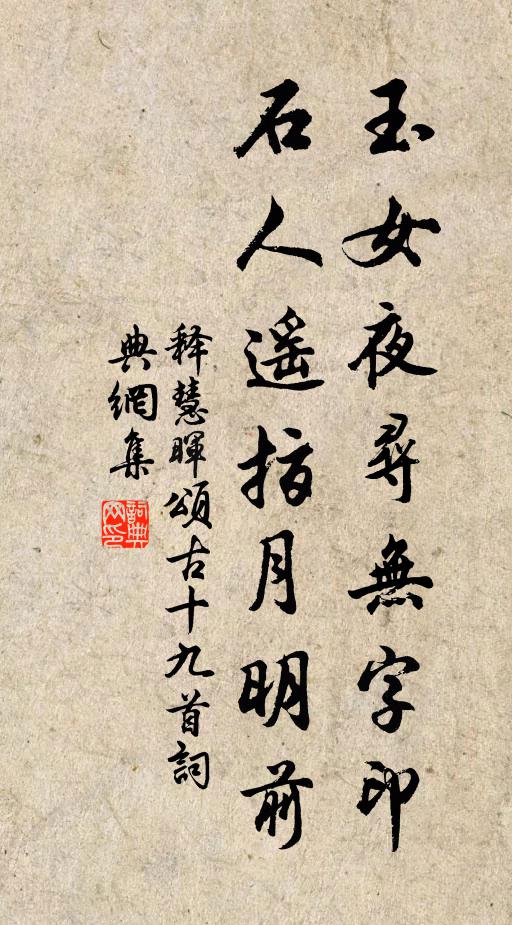 玉女夜尋無字印
石人遥指月明前
释慧暉頌古十九首詞
典網集
詞典网印